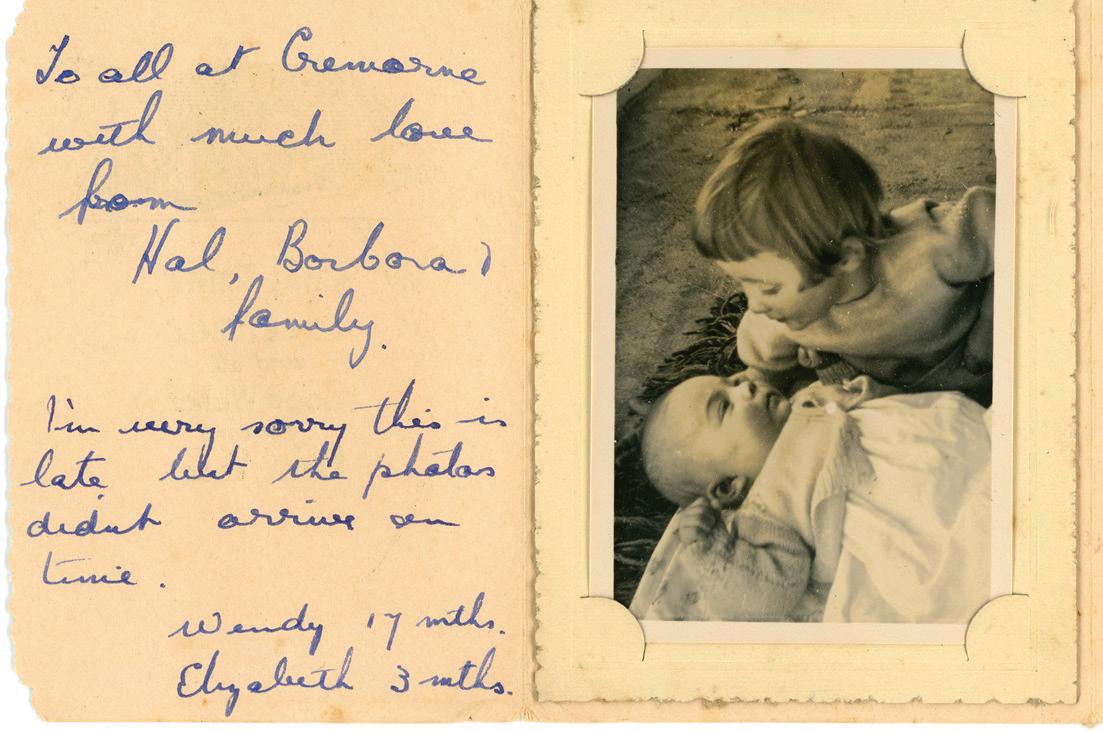 To all at Cremorne
with much love
from
Hal, Barbara &
family.
I'm very sorry this is
late but the photos
didn't arrive on
time.
Wendy 17 mths.
Elizabeth 3 mths.